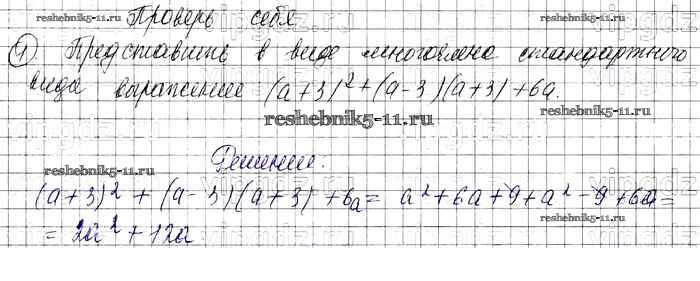 Проверь себя
reshebnik5-11.ru
reshebnik5-11.ru
① Представить в виде многочлена стандартного
вида выражение (a+3)²+(a-3)(a+3)+6a.
reshebnik5-11.ru
Решение:
reshebnik5-11.ru
(a+3)² + (a-3)(a+3) +6a = a²+6a+9+a²-9+6a=
reshebnik5-11.ru
= 2a²+12a